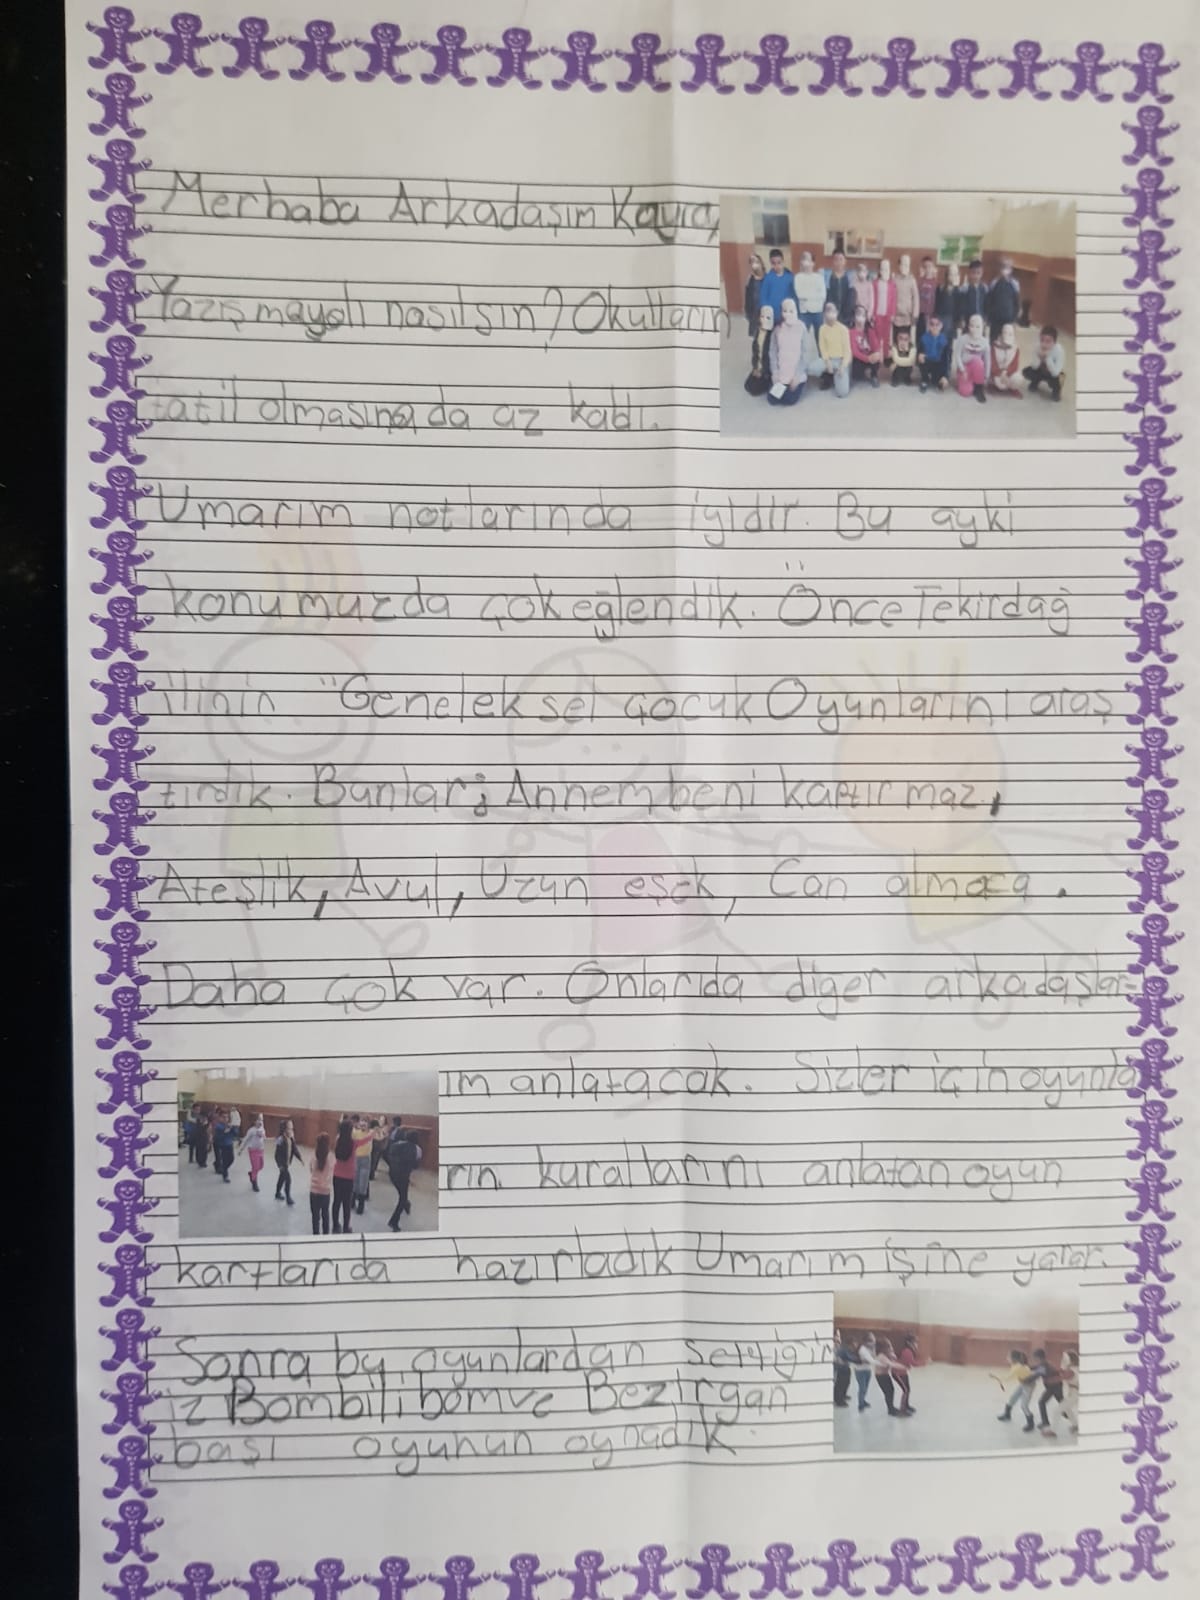 Merhaba Arkadaşım Kayra,
Yazışmayalı nasılsın? Okulların
tatil olmasına da az kaldı.
Umarım notlarında iyidir. Bu ayki
konumuzda çok eğlendik. Önce Tekirdağ
ilinin "Geneleksel çocuk Oyunlarını araş
tırdık. Bunlar; Annem beni kaptırmaz,
Ateşlik, Avul, Uzun eşek, Can almaca.
Daha çok var. Onlarıda diger arkadaşlar-
ım anlatacak. Sizler için oyunla
rın kurallarını anlatan oyun
kartlarıda hazırladık Umarım işine yarar.
Sonra bu oyunlardan seçtiğim
iz Bombili bom ve Bezirgan
başı oyunun oynadık.